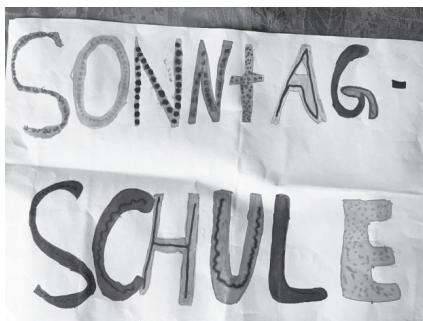 SONNtAG-
SCHULE